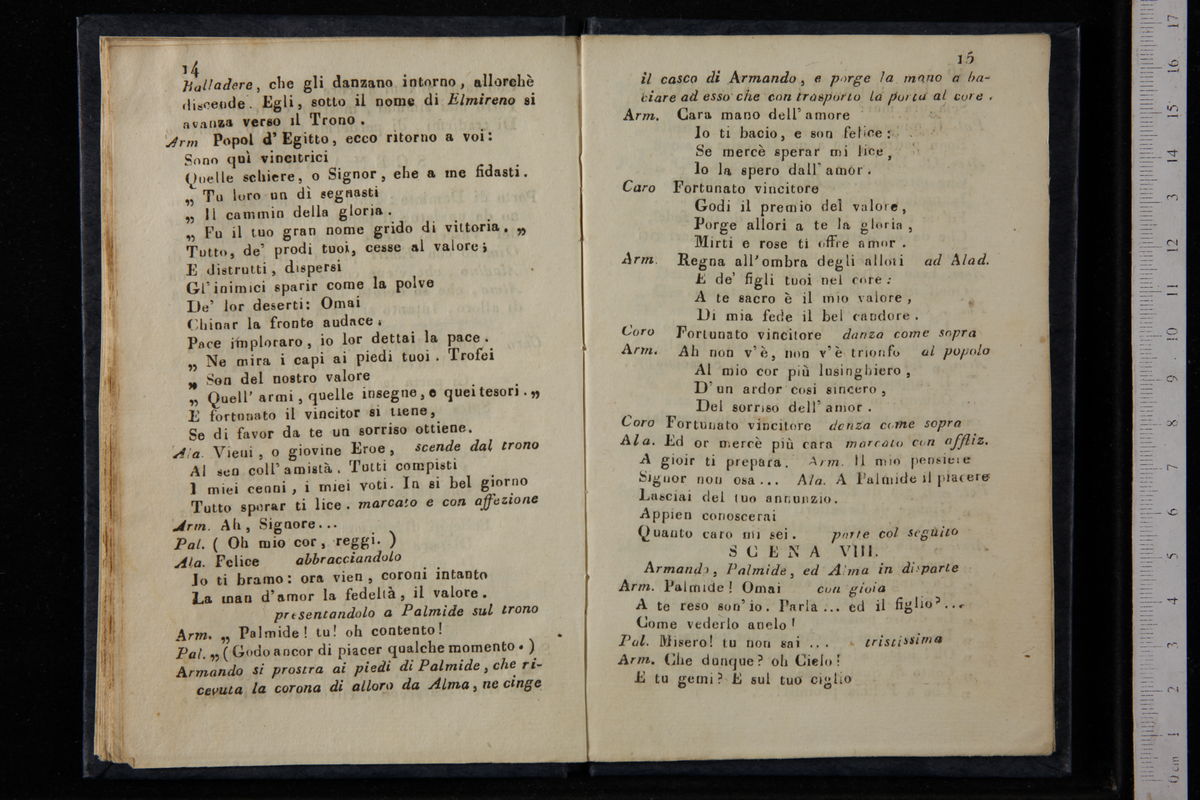 14
Balladere, che gli danzano intorno, allorchè
discende. Egli, sotto il nome di Elmireno si
avanza verso il Trono.
Arm Popol d' Egitto, ecco ritorno a voi:
Sono quì vincitrici
Quelle schiere, o Signor, che a me fidasti.
„ Tu loro un dì segnasti
„ Il cammin della gloria.
„ Fu il tuo gran nome grido di vittoria. „
Tutto, de' prodi tuoi, cesse al valore;
E distrutti, dispersi
Gl'inimici sparir come la polve
De' lor deserti: Omai
Chinar la fronte audace,
Pace imploraro, io lor dettai la pace.
„ Ne mira i capi ai piedi tuoi. Trofei
„ Son del nostro valore
„ Quell' armi, quelle insegne, e quei tesori. „
E fortunato il vincitor si tiene,
Se di favor da te un sorriso ottiene.
Ala. Vieni, o giovine Eroe, scende dal trono
Al sen coll' amistà. Tutti compisti
I miei cenni, i miei voti. In sì bel giorno
Tutto sperar ti lice. marcato e con affezione
Arm. Ah, Signore...
Pal. ( Oh mio cor, reggi. )
Ala. Felice abbracciandolo
Io ti bramo: ora vien, coroni intanto
La man d'amor la fedeltà, il valore.
presentandolo a Palmide sul trono
Arm. „ Palmide! tu! oh contento!
Pal. „ (Godo ancor di piacer qualche momento. )
Armando si prostra ai piedi di Palmide, che ri-
cevuta la corona di alloro da Alma, ne cinge
15
il casco di Armando, e porge la mano a ba-
ciare ad esso che con trasporto la porta al core.
Arm. Cara mano dell' amore
Io ti bacio, e son felice:
Se mercè sperar mi lice,
Io la spero dall' amor.
Caro Fortunato vincitore
Godi il premio del valore,
Porge allori a te la gloria,
Mirti e rose ti offre amor.
Arm. Regna all' ombra degli allori ad Alad.
E de' figli tuoi nel core:
A te sacro è il mio valore,
Di mia fede il bel candore.
Coro Fortunato vincitore danza come sopra
Arm. Ah non v'è, non v'è trionfo al popolo
Al mio cor più lusinghiero,
D' un ardor così sincero,
Del sorriso dell' amor.
Coro Fortunato vincitore danza come sopra
Ala. Ed or mercè più cara marcato con affliz.
A gioir ti prepara. Arm. Il mio pensiere
Signor non osa... Ala. A Palmide il piacere
Lasciai del tuo annunzio.
Appien conoscerai
Quanto caro mi sei. parte col seguito
SCENA VIII.
Armando, Palmide, ed Alma in disparte
Arm. Palmide! Omai con gioia
A te reso son' io. Parla... ed il figlio?...
Come vederlo anelo!
Pal. Misero! tu non sai ... tristissima
Arm. Che dunque? oh Cielo!
E tu gemi? E sul tuo ciglio